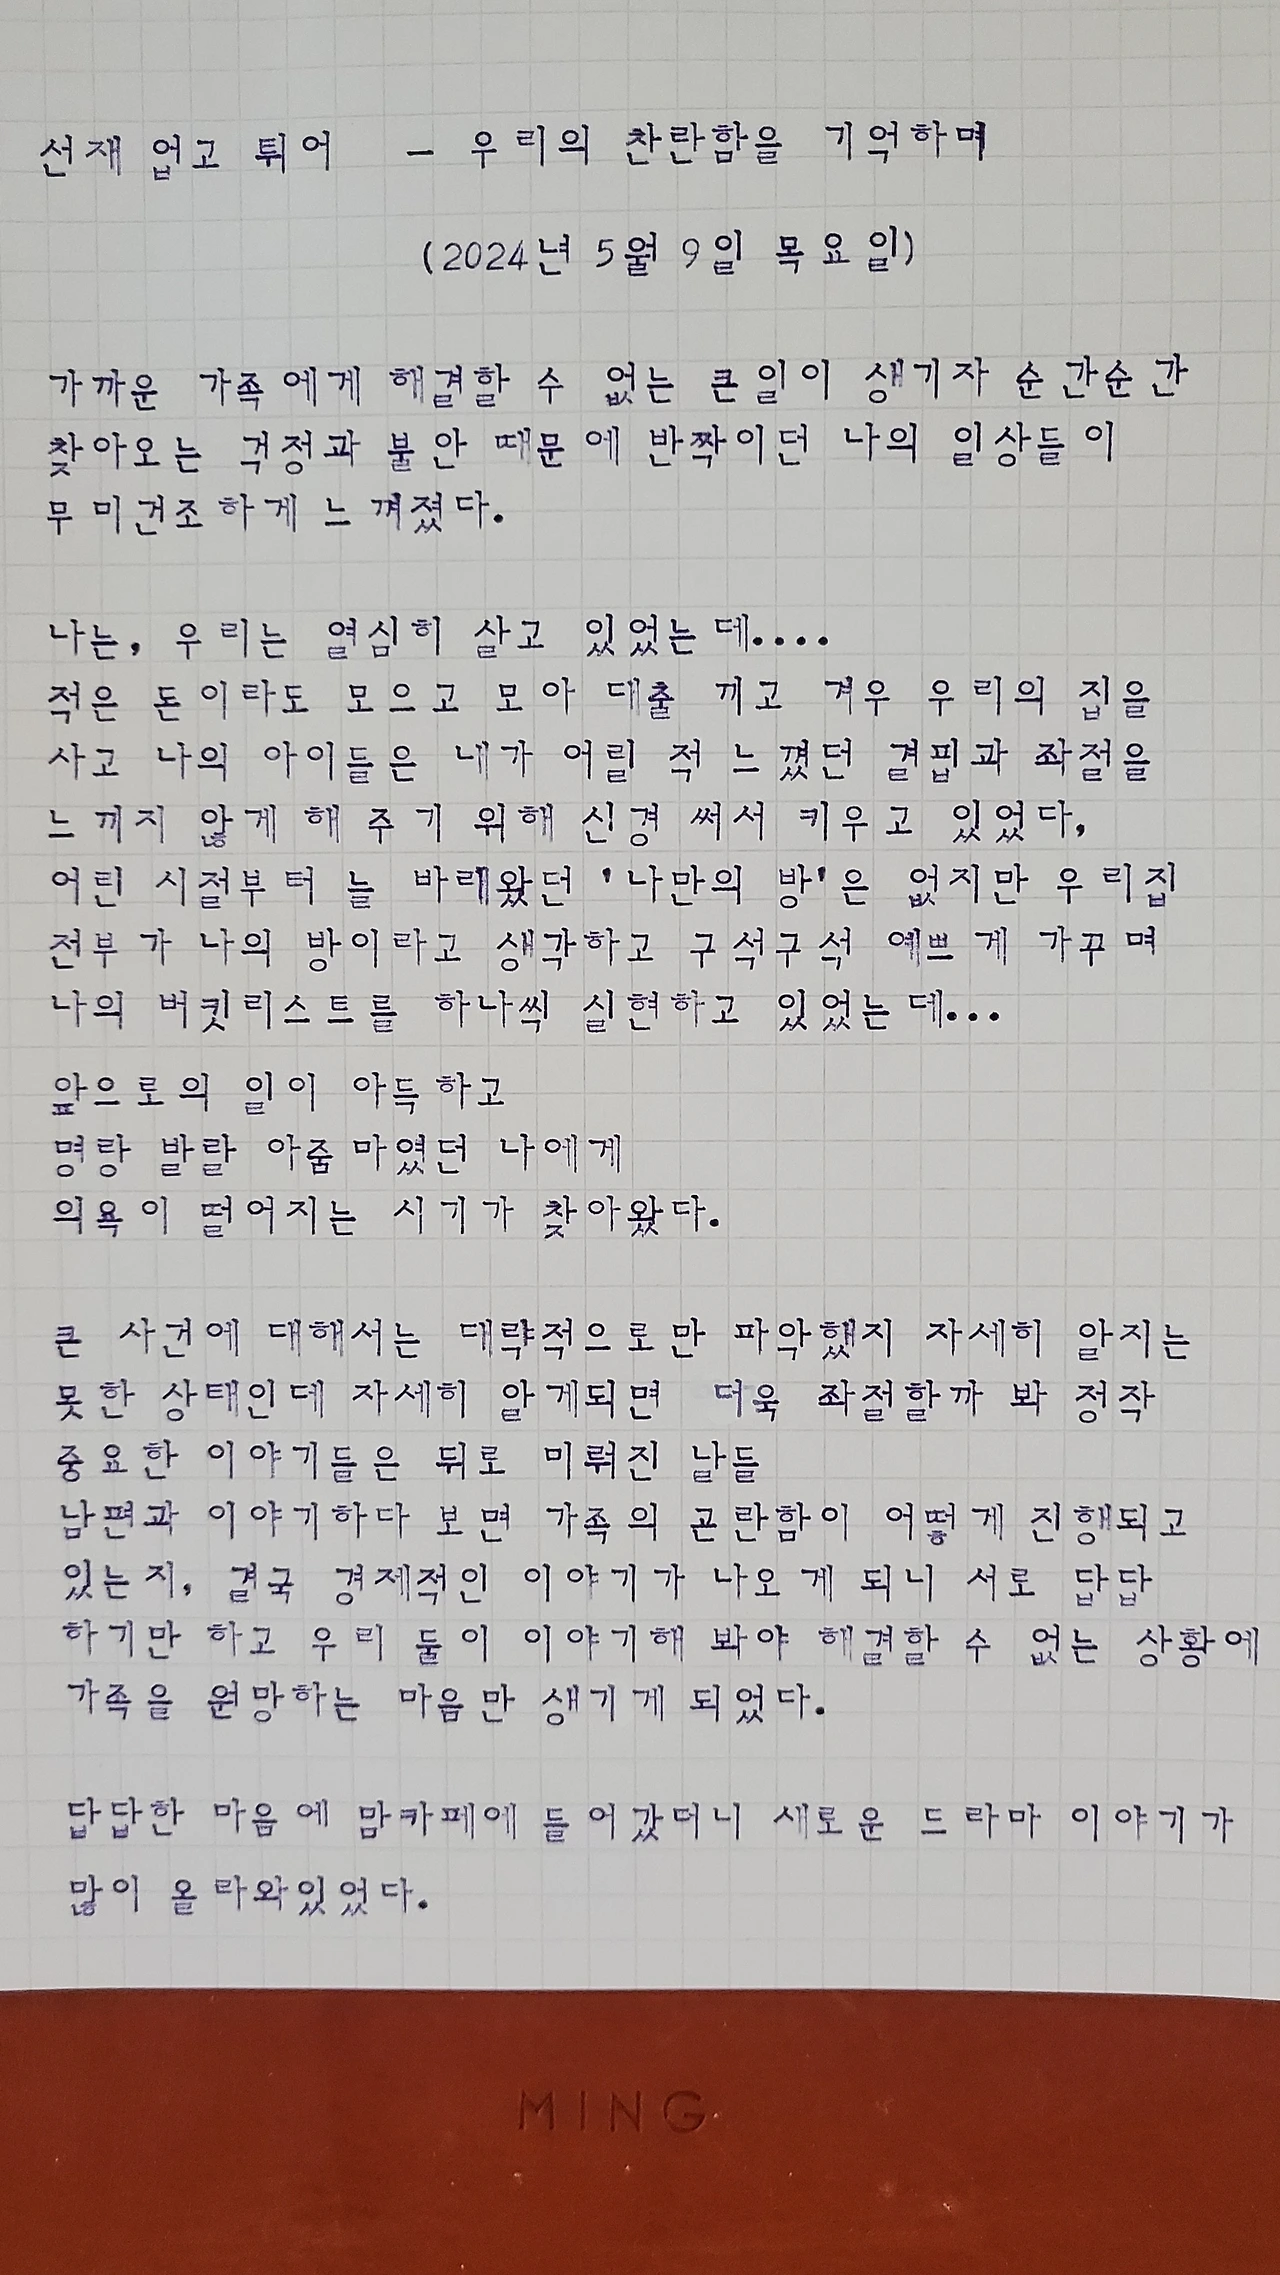 선재 업고 튀어 - 우리의 찬란함을 기억하며
(2024년 5월 9일 목요일)
가까운 가족에게 해결할 수 없는 큰일이 생기자 순간순간
찾아오는 걱정과 불안 때문에 반짝이던 나의 일상들이
무미건조하게 느껴졌다.
나는, 우리는 열심히 살고 있었는데....
적은 돈이라도 모으고 모아 대출 끼고 겨우 우리의 집을
사고 나의 아이들은 내가 어릴 적 느꼈던 결핍과 좌절을
느끼지 않게 해 주기 위해 신경 써서 키우고 있었다,
어린 시절부터 늘 바래왔던 '나만의 방'은 없지만 우리집
전부가 나의 방이라고 생각하고 구석구석 예쁘게 가꾸며
나의 버킷리스트를 하나씩 실현하고 있었는데...
앞으로의 일이 아득하고
명랑 발랄 아줌마였던 나에게
의욕이 떨어지는 시기가 찾아왔다.
큰 사건에 대해서는 대략적으로만 파악했지 자세히 알지는
못한 상태인데 자세히 알게되면 더욱 좌절할까 봐 정작
중요한 이야기들은 뒤로 미뤄진 날들
남편과 이야기하다 보면 가족의 곤란함이 어떻게 진행되고
있는지, 결국 경제적인 이야기가 나오게 되니 서로 답답
하기만 하고 우리 둘이 이야기해 봐야 해결할 수 없는 상황에
가족을 원망하는 마음만 생기게 되었다.
답답한 마음에 맘카페에 들어갔더니 새로운 드라마 이야기가
많이 올라와있었다.
MING.